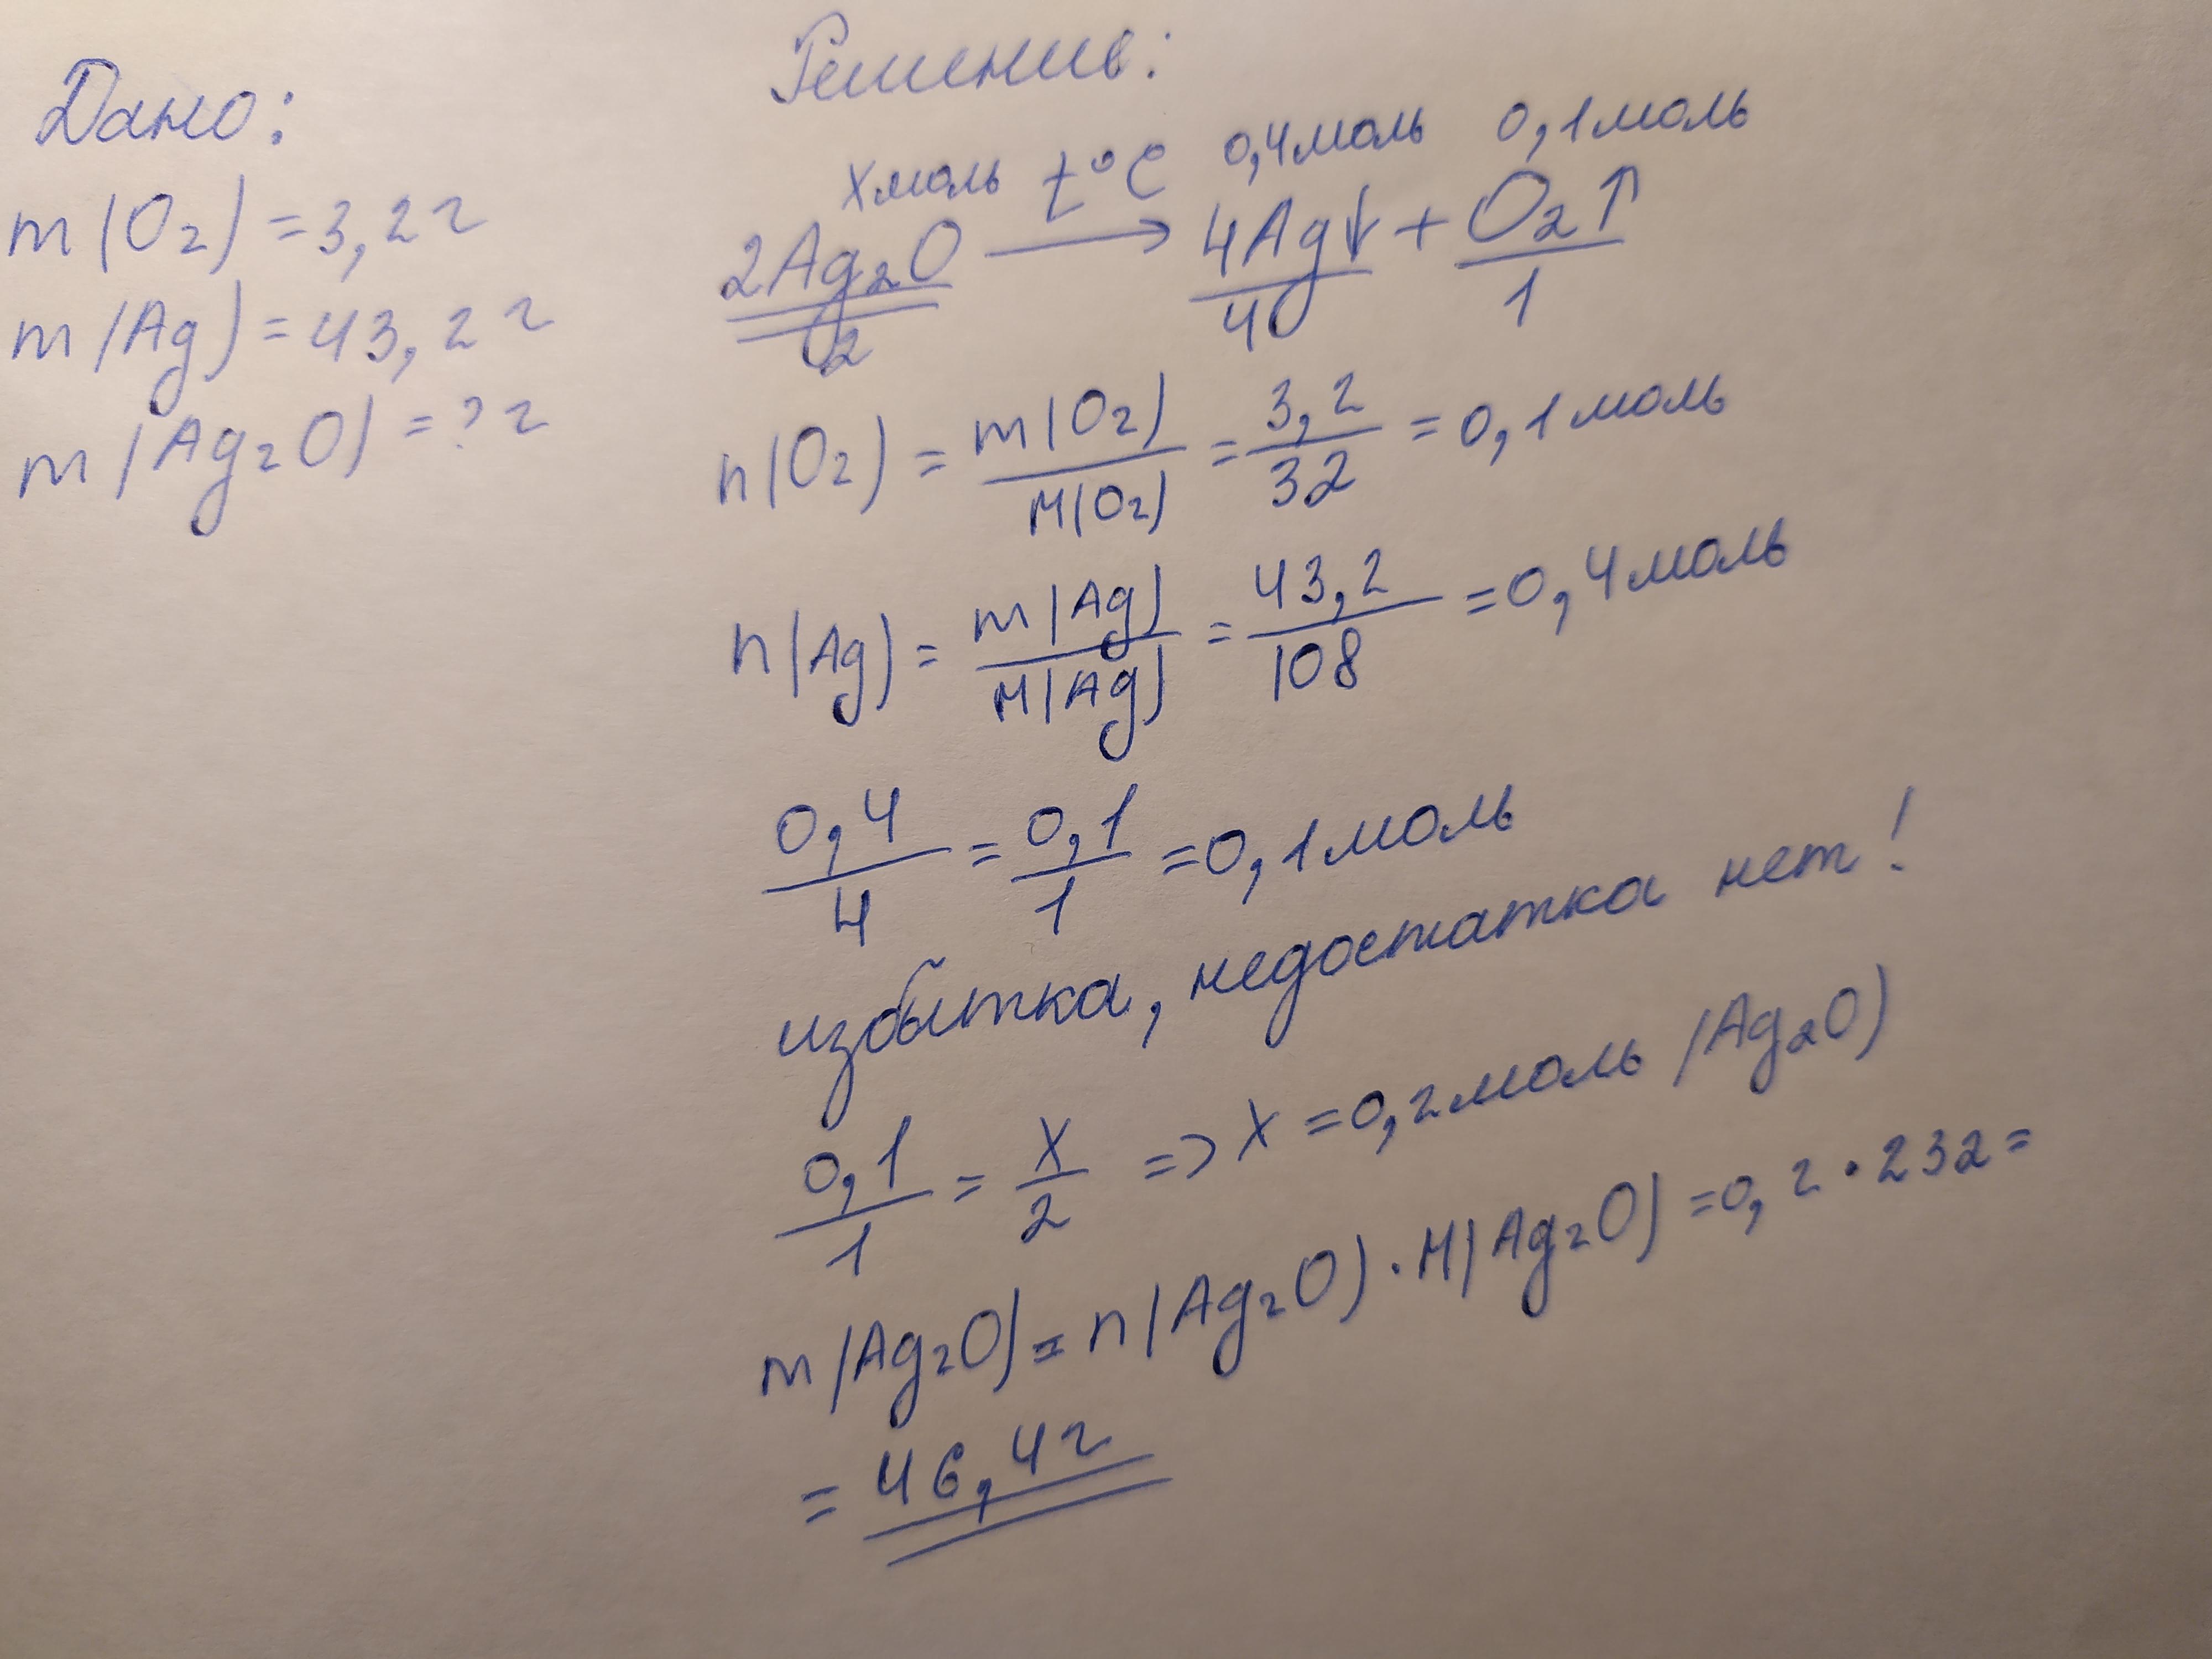 Дано:
m(O₂) = 3,2 г
m(Ag) = 43,2 г
m(Ag₂O) = ? г
Решение:
x моль t°C 0,4 моль 0,1 моль
2Ag₂O → 4Ag↓ + O₂↑
2 4 1
n(O₂) = m(O₂)/M(O₂) = 3,2/32 = 0,1 моль
n(Ag) = m(Ag)/M(Ag) = 43,2/108 = 0,4 моль
0,4/4 = 0,1/1 = 0,1 моль
избытка, недостатка нет!
0,1/1 = x/2 => x = 0,2 моль (Ag₂O)
m(Ag₂O) = n(Ag₂O) · M(Ag₂O) = 0,2 · 232 =
= 46,4 г